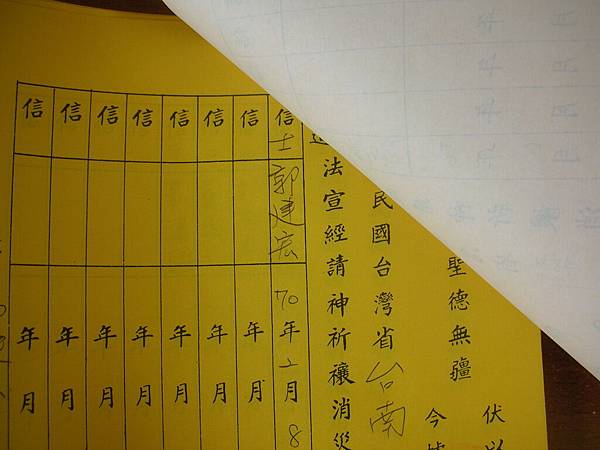 伏以
今據
聖德無疆
民國台灣省台南
法宣經請神祈禳消災
信士郭建宏 70年2月8
信 年 月
信 年 月
信 年 月
信 年 月
信 年 月
信 年 月
信 年 月